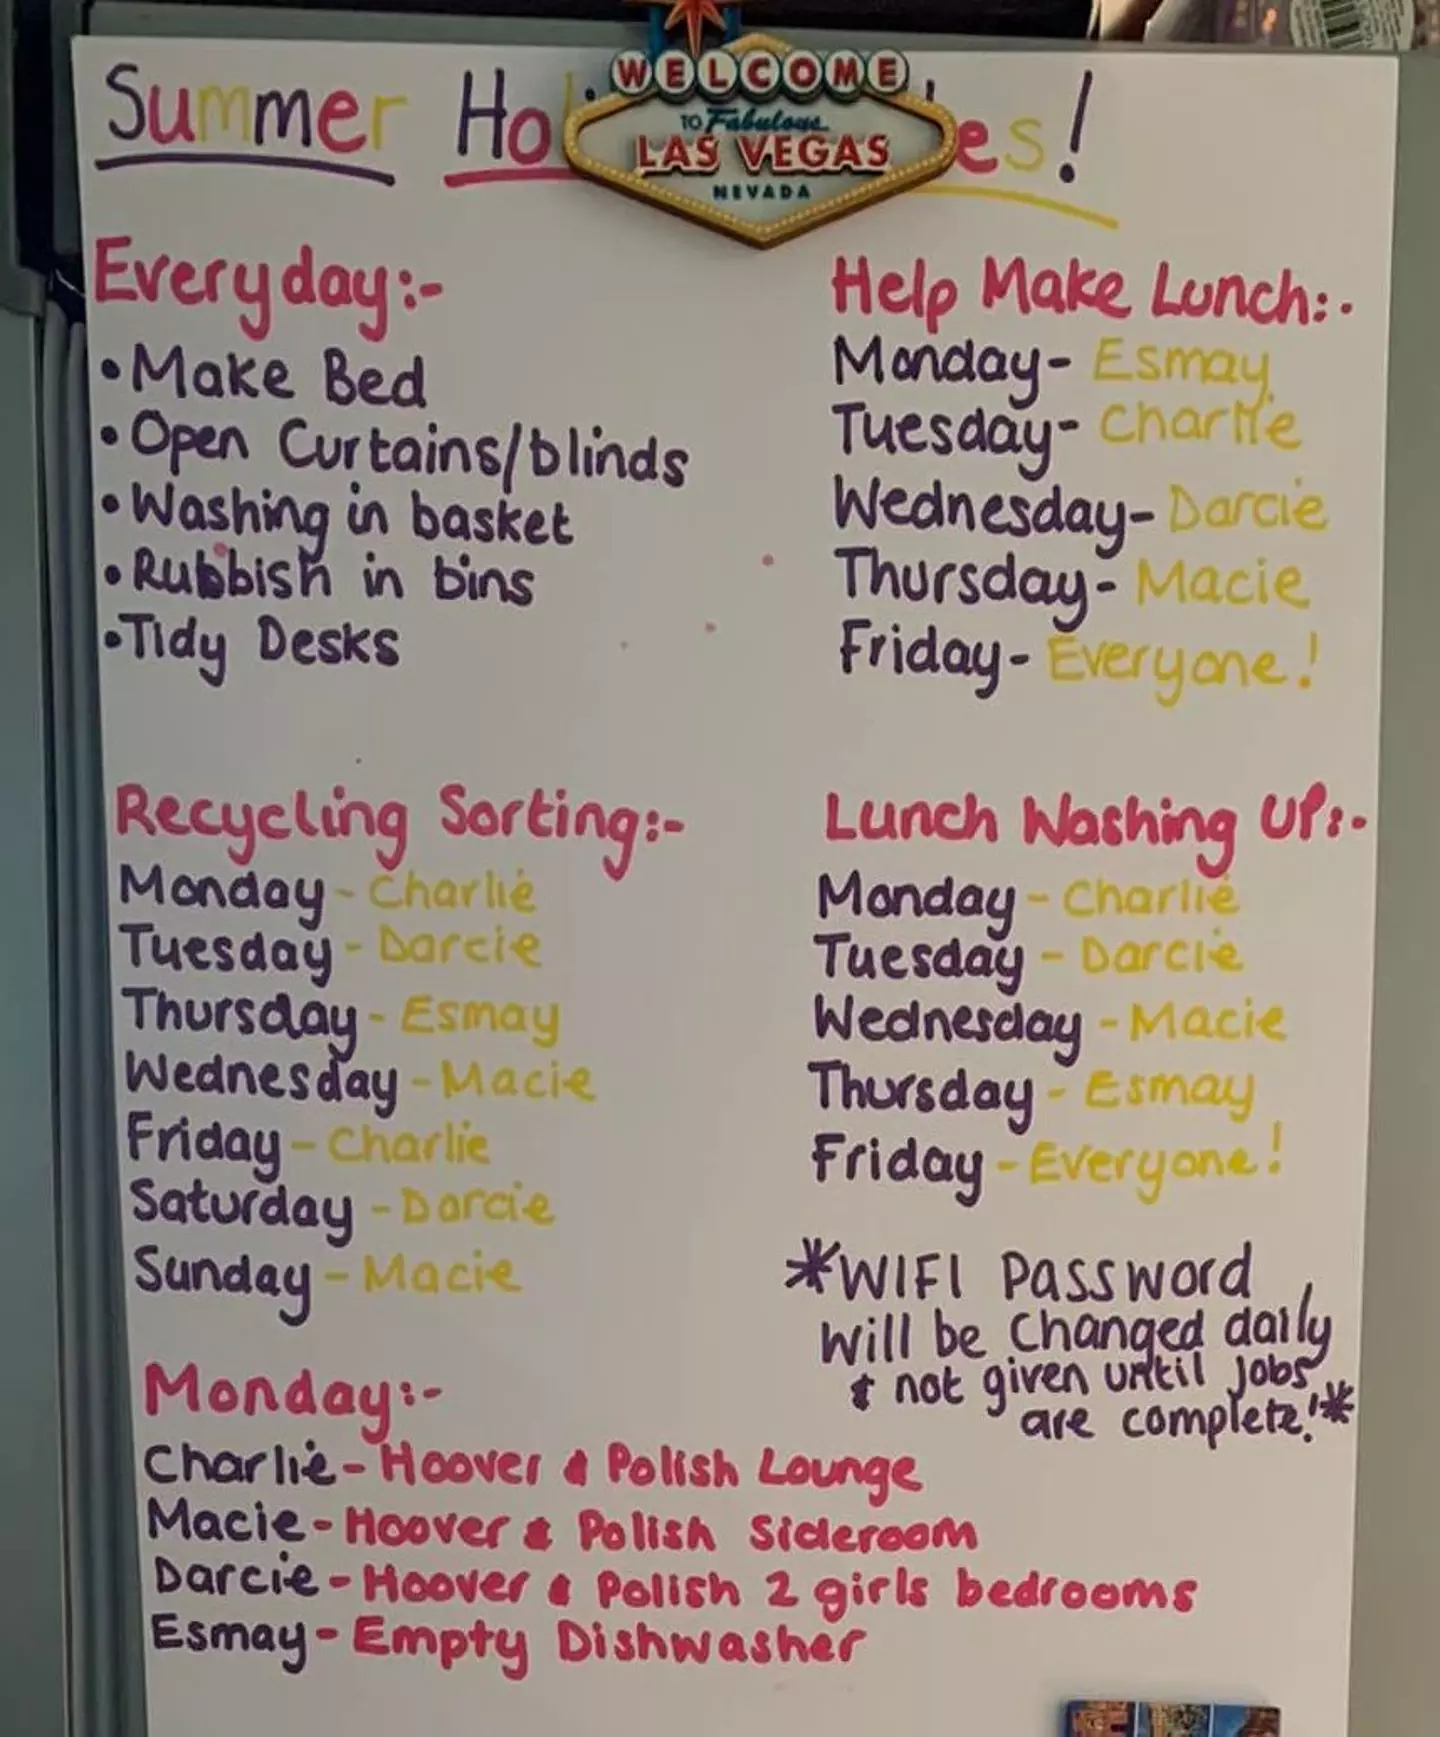 WELCOME
TO Fabulous
LAS VEGAS
NEVADA
Summer
Everyday:-
•Make Bed
•Open Curtains/blinds
•Washing in basket
•Rubbish in bins
•Tidy Desks
Help Make Lunch:-
Monday- Esmay
Tuesday- Charlie
Wednesday- Darcie
Thursday- Macie
Friday- Everyone!
Recycling Sorting:-
Monday - Charlie
Tuesday - Darcie
Thursday - Esmay
Wednesday - Macie
Friday - Charlie
Saturday - Darcie
Sunday - Macie
Lunch Washing UP:-
Monday - Charlie
Tuesday - Darcie
Wednesday - Macie
Thursday - Esmay
Friday - Everyone!
*WIFI Password
will be changed daily
& not given until jobs
are complete!*
Monday:-
Charlie - Hoover & Polish Lounge
Macie - Hoover & Polish Sideroom
Darcie - Hoover & Polish 2 girls bedrooms
Esmay - Empty Dishwasher